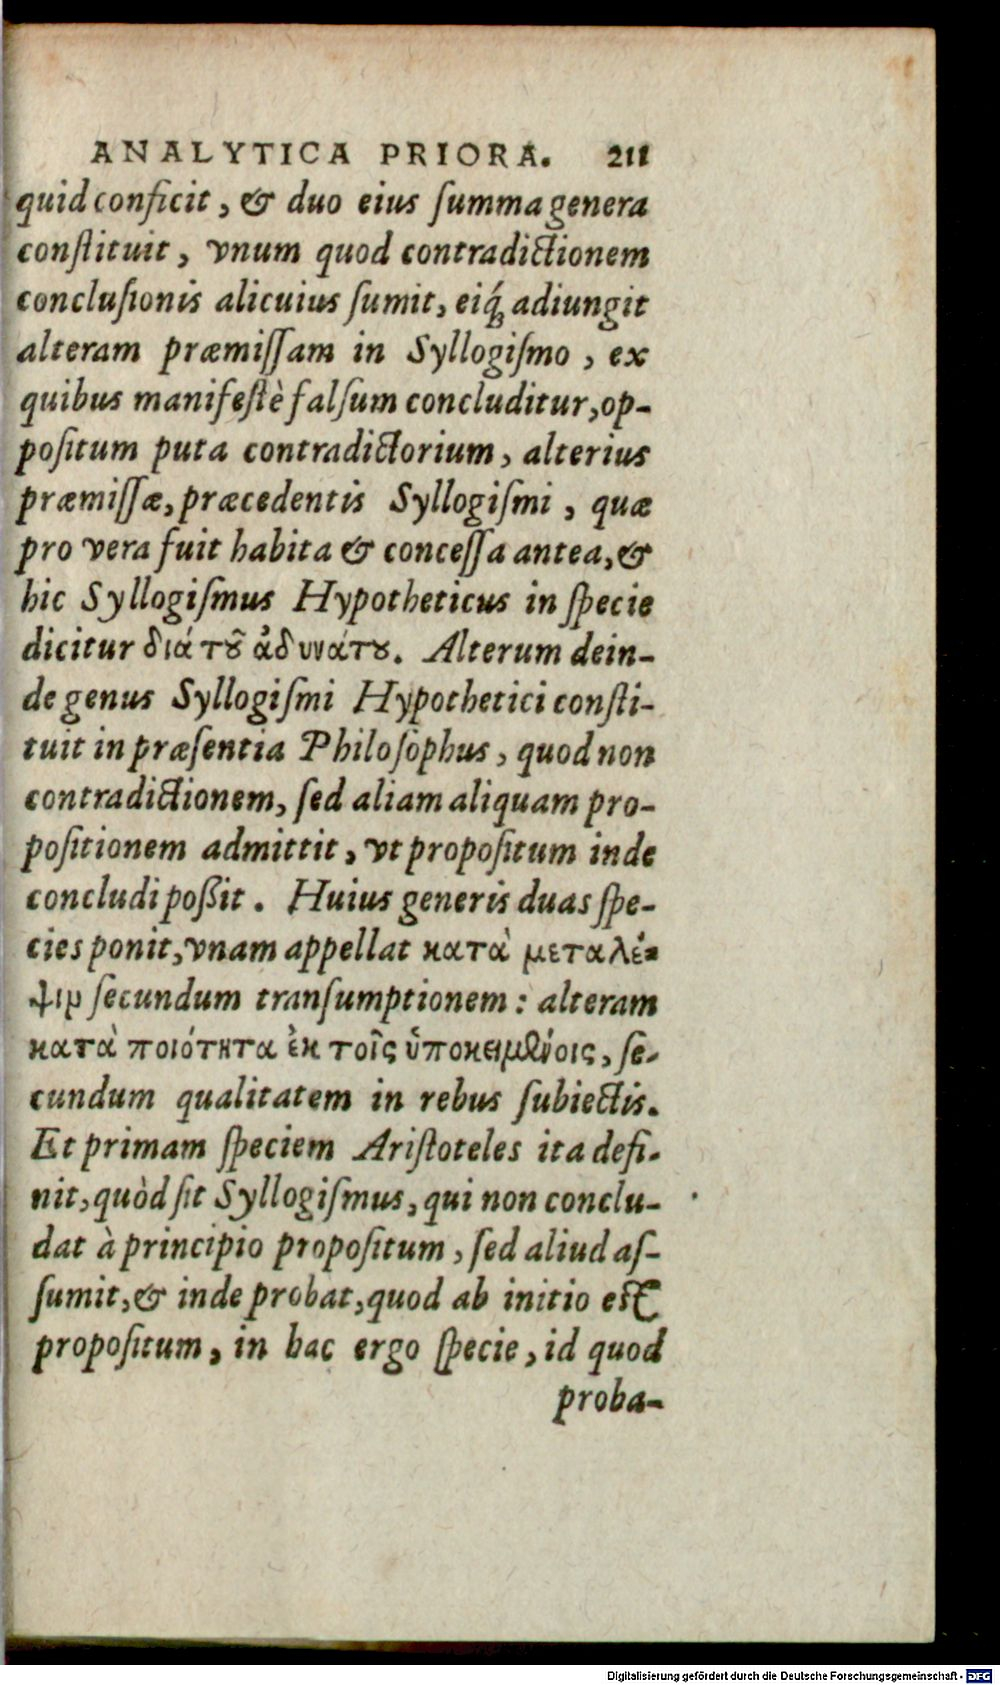 ANALYTICA PRIORA. 211
quid conficit, & duo eius ſumma genera
conſtituit, vnum quod contradictionem
concluſionis alicuius ſumit, eiq́; adiungit
alteram præmiſſam in Syllogiſmo, ex
quibus manifeſtè falſum concluditur, op-
poſitum puta contradictorium, alterius
præmiſſæ, præcedentis Syllogiſmi, quæ
pro vera fuit habita & conceſſa antea, &
hic Syllogiſmus Hypotheticus in ſpecie
dicitur διά τȣ͂ ἀδυνάτȣ. Alterum dein-
de genus Syllogiſmi Hypothetici conſti-
tuit in præſentia Philoſophus, quod non
contradictionem, ſed aliam aliquam pro-
poſitionem admittit, vt propoſitum inde
concludi poßit. Huius generis duas ſpe-
cies ponit, vnam appellat κατὰ μεταλέ-
ψιν ſecundum tranſumptionem: alteram
κατὰ ποιότητα ἐκ τοῖς ὑποκειμένοις, ſe-
cundum qualitatem in rebus ſubiectis.
Et primam ſpeciem Ariſtoteles ita defi-
nit, quòd ſit Syllogiſmus, qui non conclu-
dat à principio propoſitum, ſed aliud aſ-
ſumit, & inde probat, quod ab initio eſt
propoſitum, in hac ergo ſpecie, id quod
proba-
Digitalisierung gefördert durch die Deutsche Forschungsgemeinschaft - DFG